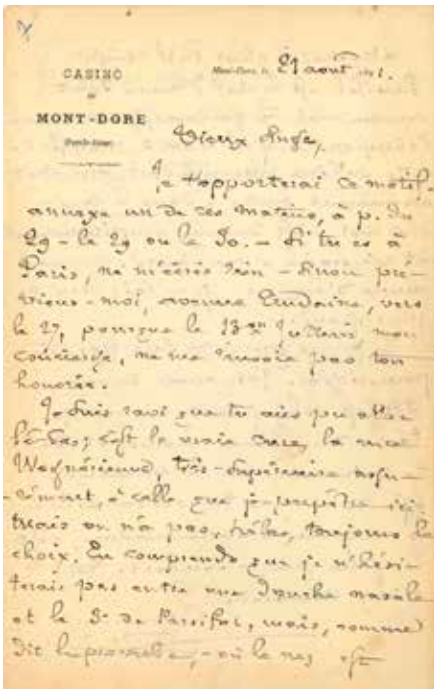 CASINO
DU
MONT-DORE
Mont-Dore, le 21 août 1891.
Vieux Ange,
Je t'apporterai ce motif-
annexe un de ces matins, à p. du
29 - le 29 ou le 30. - Si tu es à
Paris, ne m'écris rien - Sinon pré-
viens-moi, avenue Trudaine, vers
le 27, pour que le mon
concierge, ne me pas ton
honorée.
Je suis ravi que tu aies pu aller
là-bas; c'est la vraie cure, la cure
Wagnérienne, très supérieure
à celle que je perpètre ici
mais on n'a pas, hélas, toujours le
choix. Tu comprends que je n'hési-
terais pas entre une douche nasale
et le de Parsifal, mais, comme
dit le proverbe, - où le nez est